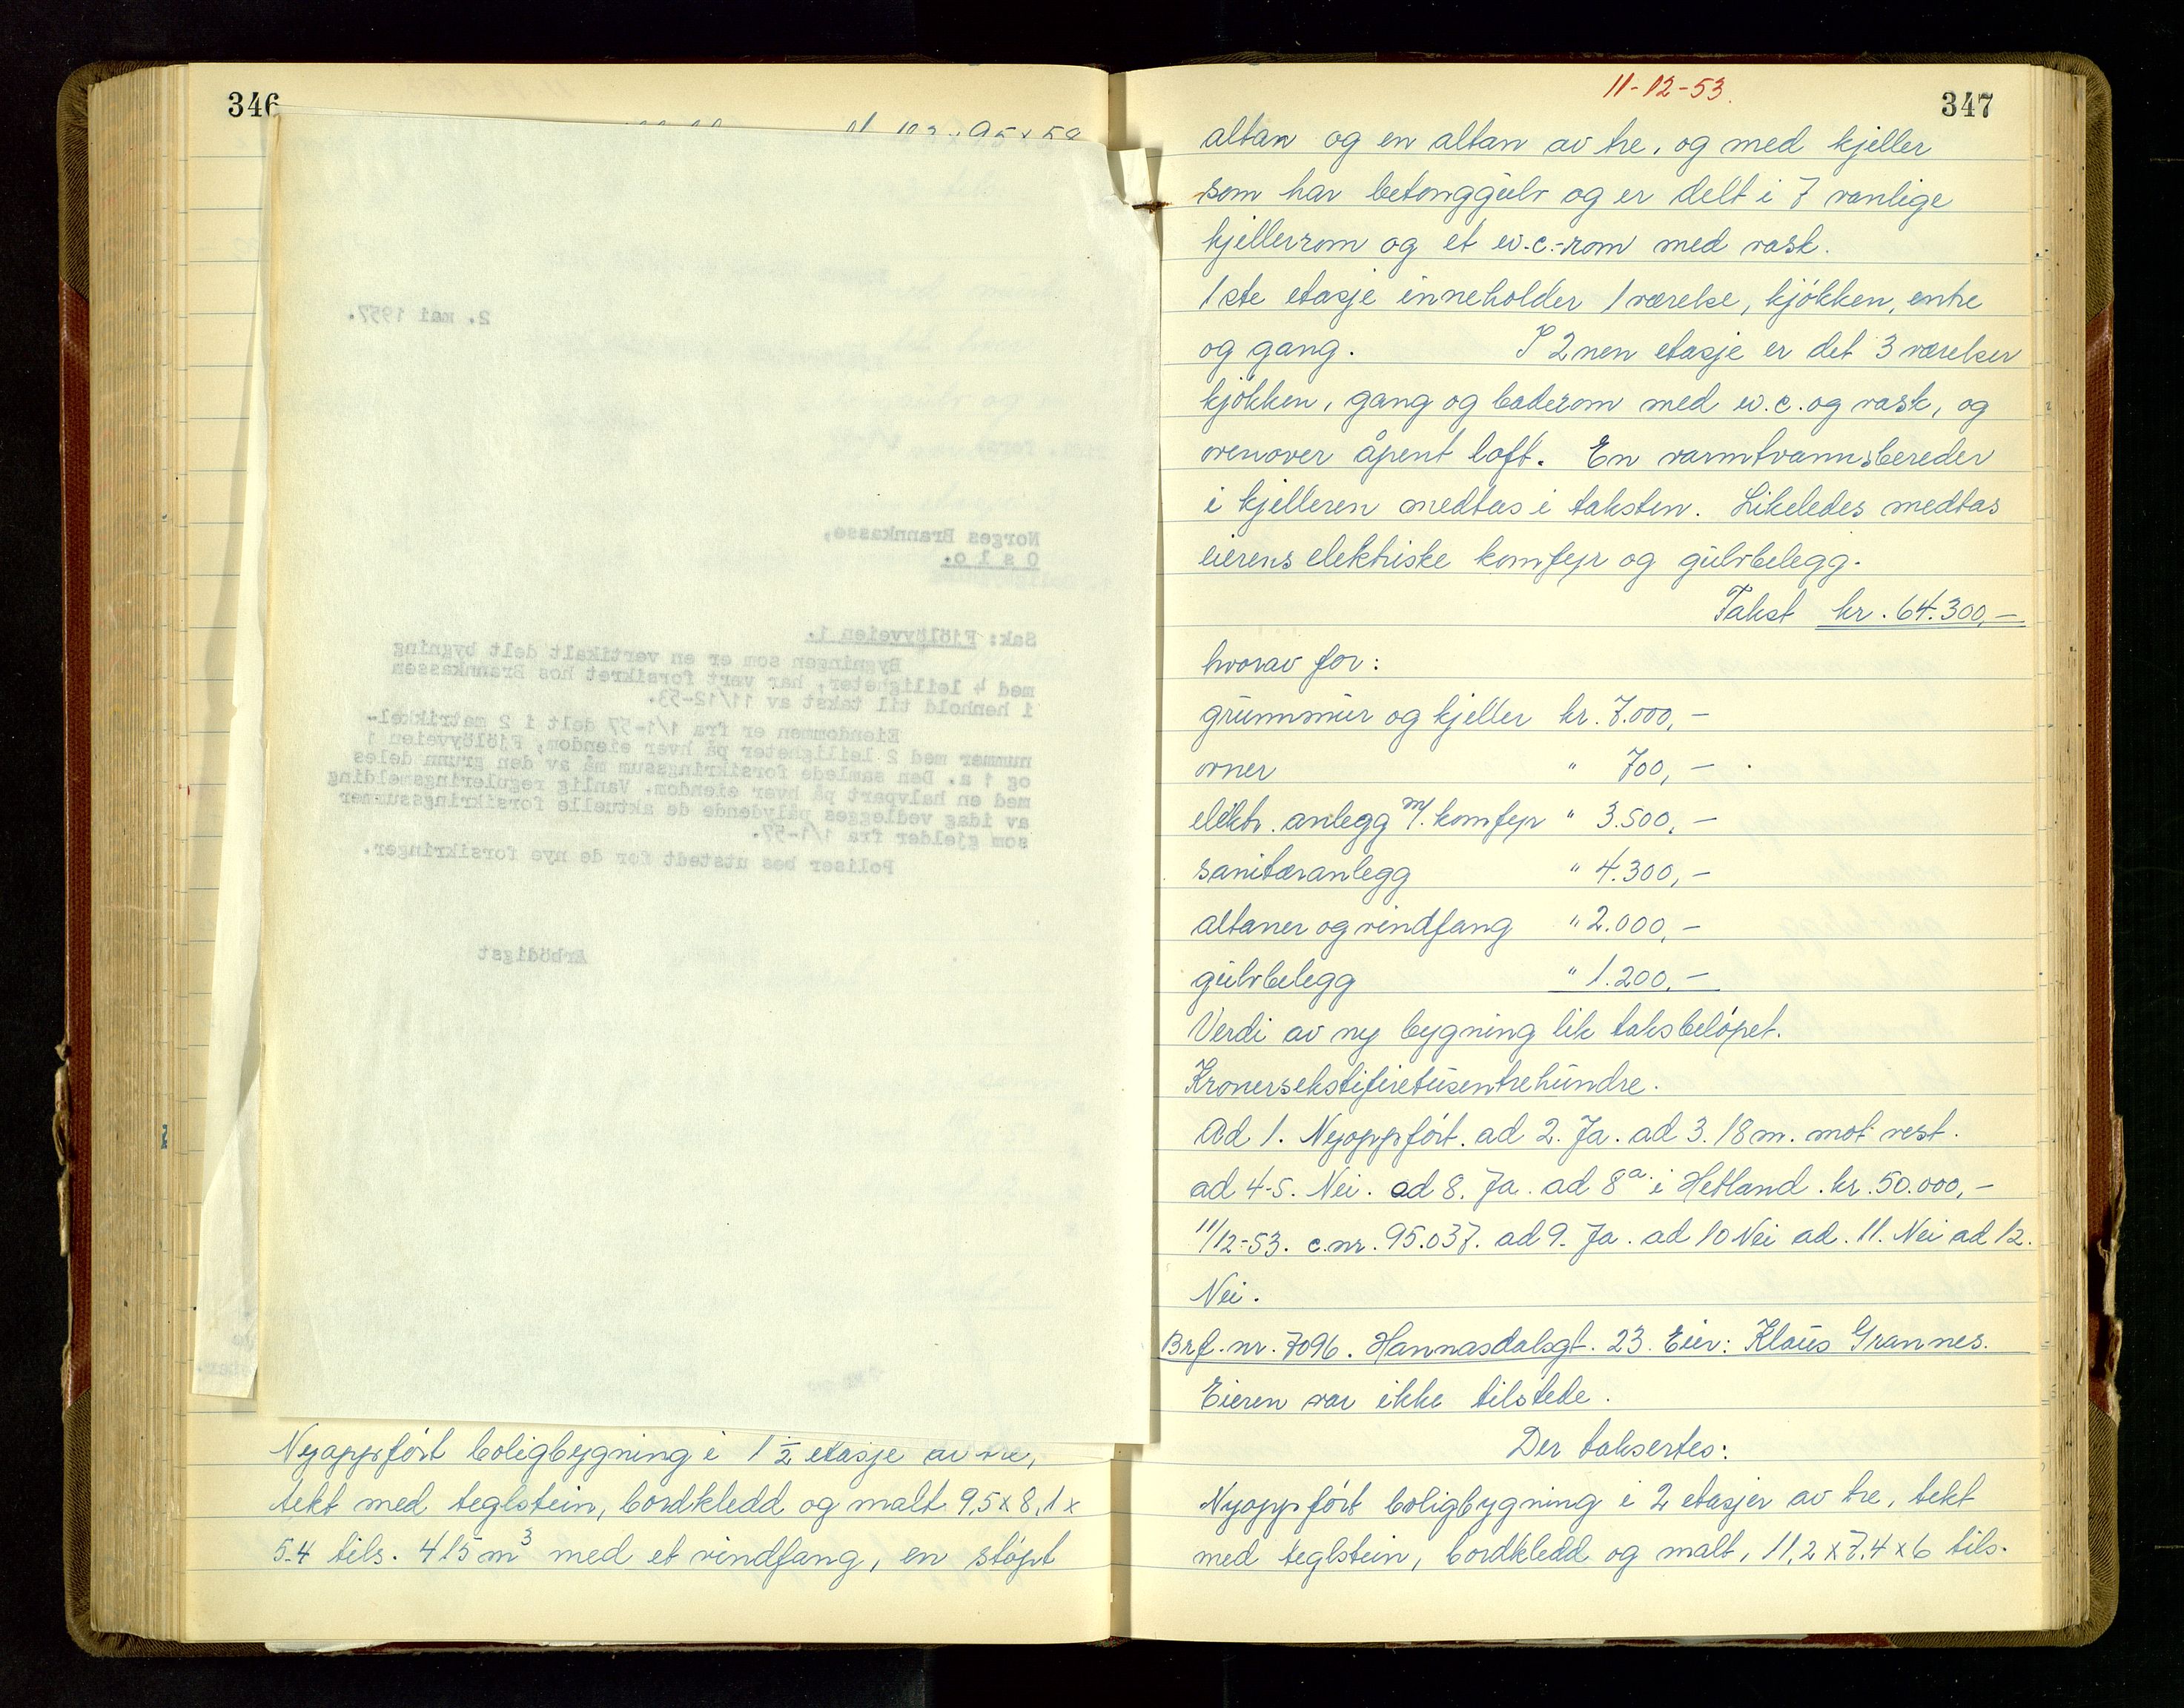 346
2. mai 1957.
Norges Brannkasse,
O s l o.
Sak: Fjölöyveien 1.
Bygningen som er en vertikalt delt bygning
med 4 leiligheter, har vært forsikret hos Brannkassen
i henhold til takst av 11/12-53.
Eiendommen er fra 1/1-57 delt i 2 matrikkel-
nummer med 2 leiligheter på hver eiendom, Fjölöyveien 1
og 1 a. Den samlede forsikringssum må av den grunn deles
med en halvpart på hver eiendom. Vanlig reguleringsmelding
av idag vedlegges pålydende de aktuelle forsikringssummer
som gjelder fra 1/1-57.
Poliser bes utstedt for de nye forsikringer.
Ærbödigst
Nyoppført boligbygning i 1 1/2 etasje av tre,
tekt med teglstein, bordkledd og malt 9,5 x 8,1 x
5.4 tils. 415 m³ med et vindfang, en støpt
11-12-53.
347
altan og en altan av tre, og med kjeller
som har betonggulv og er delt i 7 vanlige
kjellerrom og et w.c.-rom med vask.
1ste etasje inneholder 1 værelse, kjøkken, entre
og gang. I 2nen etasje er det 3 værelser
kjøkken, gang og baderom med w.c. og vask, og
ovenover åpent loft. En varmtvannsbereder
i kjelleren medtas i taksten. Likeledes medtas
eierens elektriske komfyr og gulvbelegg.
Takst kr. 64.300,-
hvorav for:
grunnmur og kjeller kr. 7.000,-
ovner " 700,-
elektr. anlegg m/. komfyr " 3.500,-
sanitæranlegg " 4.300,-
altaner og vindfang " 2.000,-
gulvbelegg " 1.200,-
Verdi av ny bygning lik taksbeløpet.
Kronersekstifiretusentrehundre.
Ad 1. Nyoppført. ad 2. Ja. ad 3. 18 m. mot vest.
ad 4-5. Nei. ad 8. Ja. ad 8a i Hetland. kr. 50.000,-
11/12-53. c.nr. 95.037. ad 9. Ja. ad 10 Nei ad. 11. Nei ad 12.
Nei.
Brf. nr. 7096. Hannasdalsgt. 23. Eier: Klaus Grannes.
Eieren var ikke tilstede.
Der taksertes:
Nyoppført boligbygning i 2 etasjer av tre, tekt
med teglstein, bordkledd og malt, 11,2 x 7.4 x 6 tils.